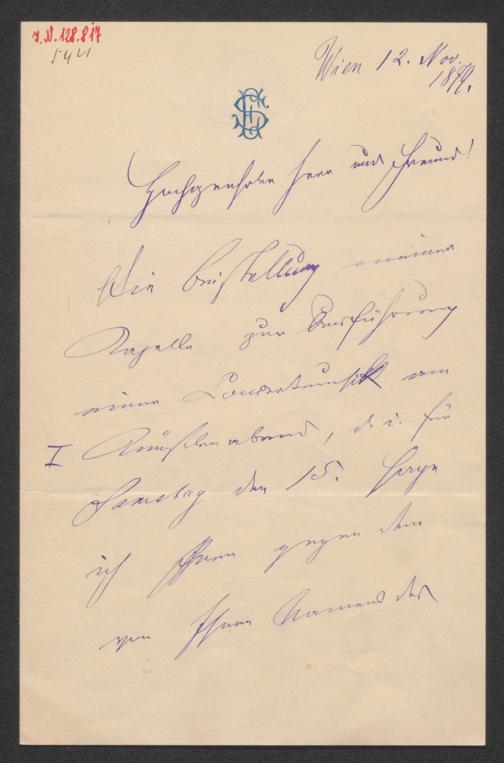 I.N. 128.817
Wien 12. Nov.
1879.
Hochgeehrter Herr und Freund!
Die Beistellung meiner
Kapelle zur Ausführung
einer Concertmusik am
I Künstlerabend, d. i. für
Samstag den 15. sage
ich Ihnen gegen dem
von Ihnen Namens des